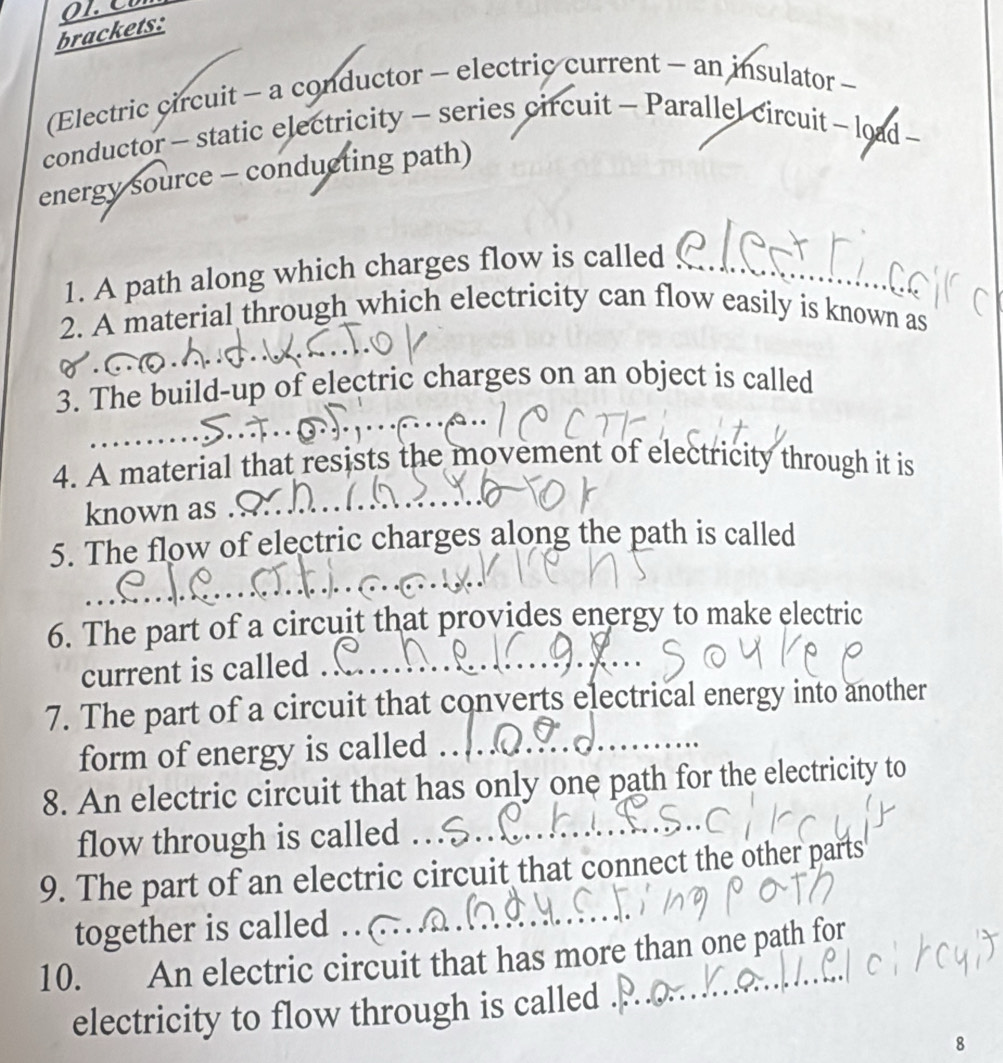 01.
brackets:
(Electric circuit – a conductor – electric current – an insulator –
conductor – static electricity – series circuit – Parallel circuit – load –
energy source – conducting path)
1. A path along which charges flow is called electri ccirc
2. A material through which electricity can flow easily is known as
a conductor
3. The build-up of electric charges on an object is called
static electricity
4. A material that resists the movement of electricity through it is
known as an insulator
5. The flow of electric charges along the path is called
electric current
6. The part of a circuit that provides energy to make electric
current is called energy source
7. The part of a circuit that converts electrical energy into another
form of energy is called load
8. An electric circuit that has only one path for the electricity to
flow through is called series circuit
9. The part of an electric circuit that connect the other parts
together is called conducting path
10. An electric circuit that has more than one path for
electricity to flow through is called parallel circuit
8